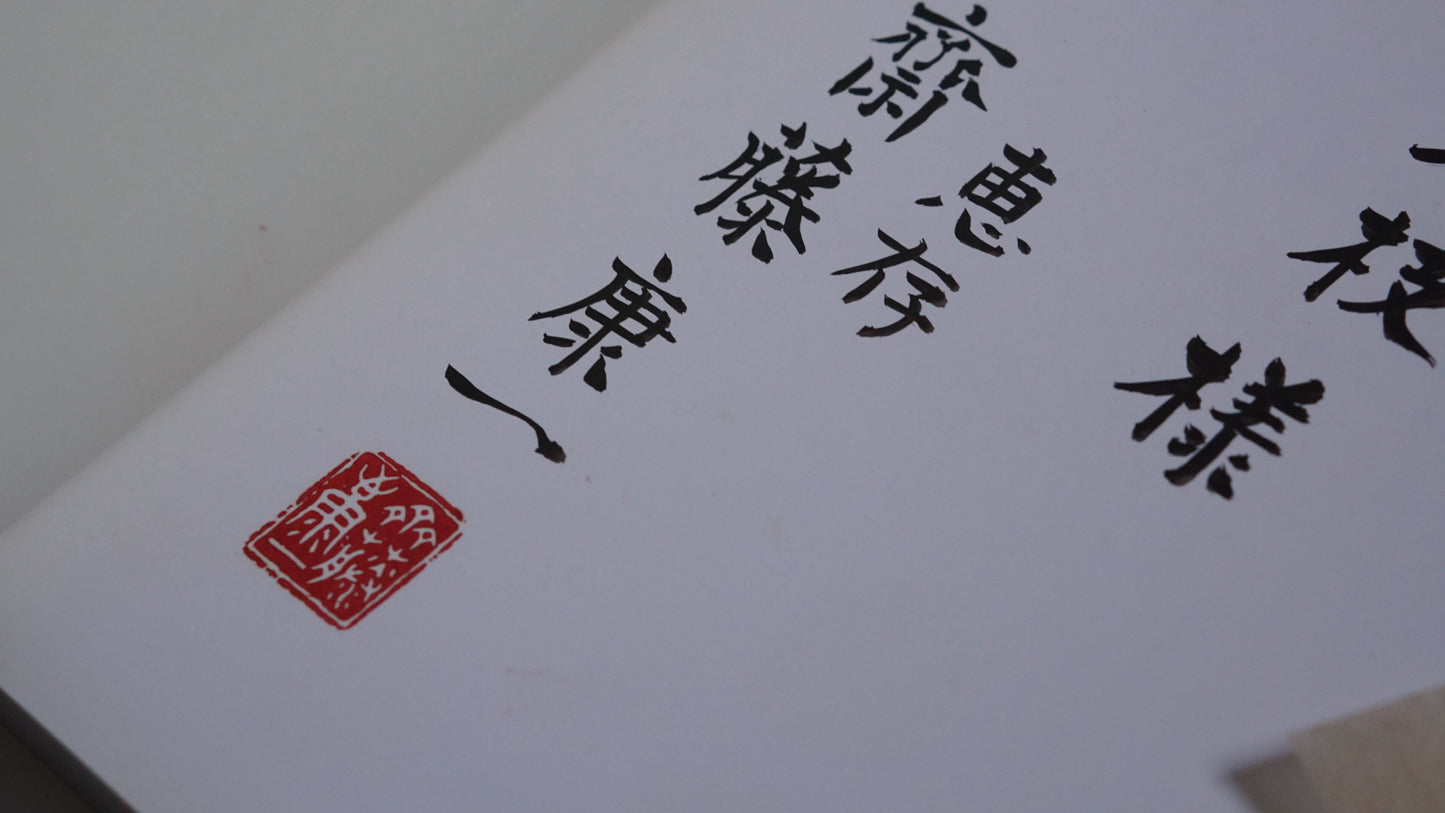 様
恵存
齋藤康一